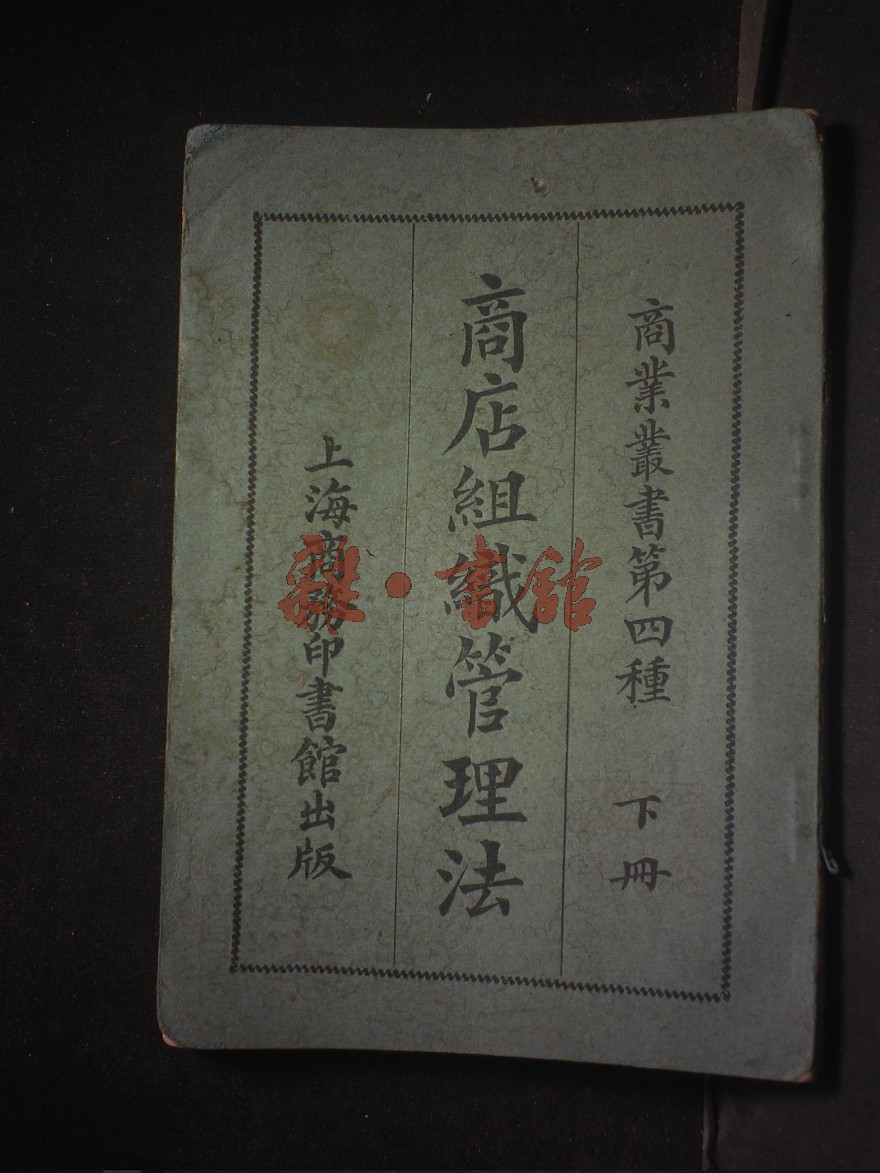 商業叢書第四種 下冊
商店組織管理法
上海商務印書館出版
雜·書館